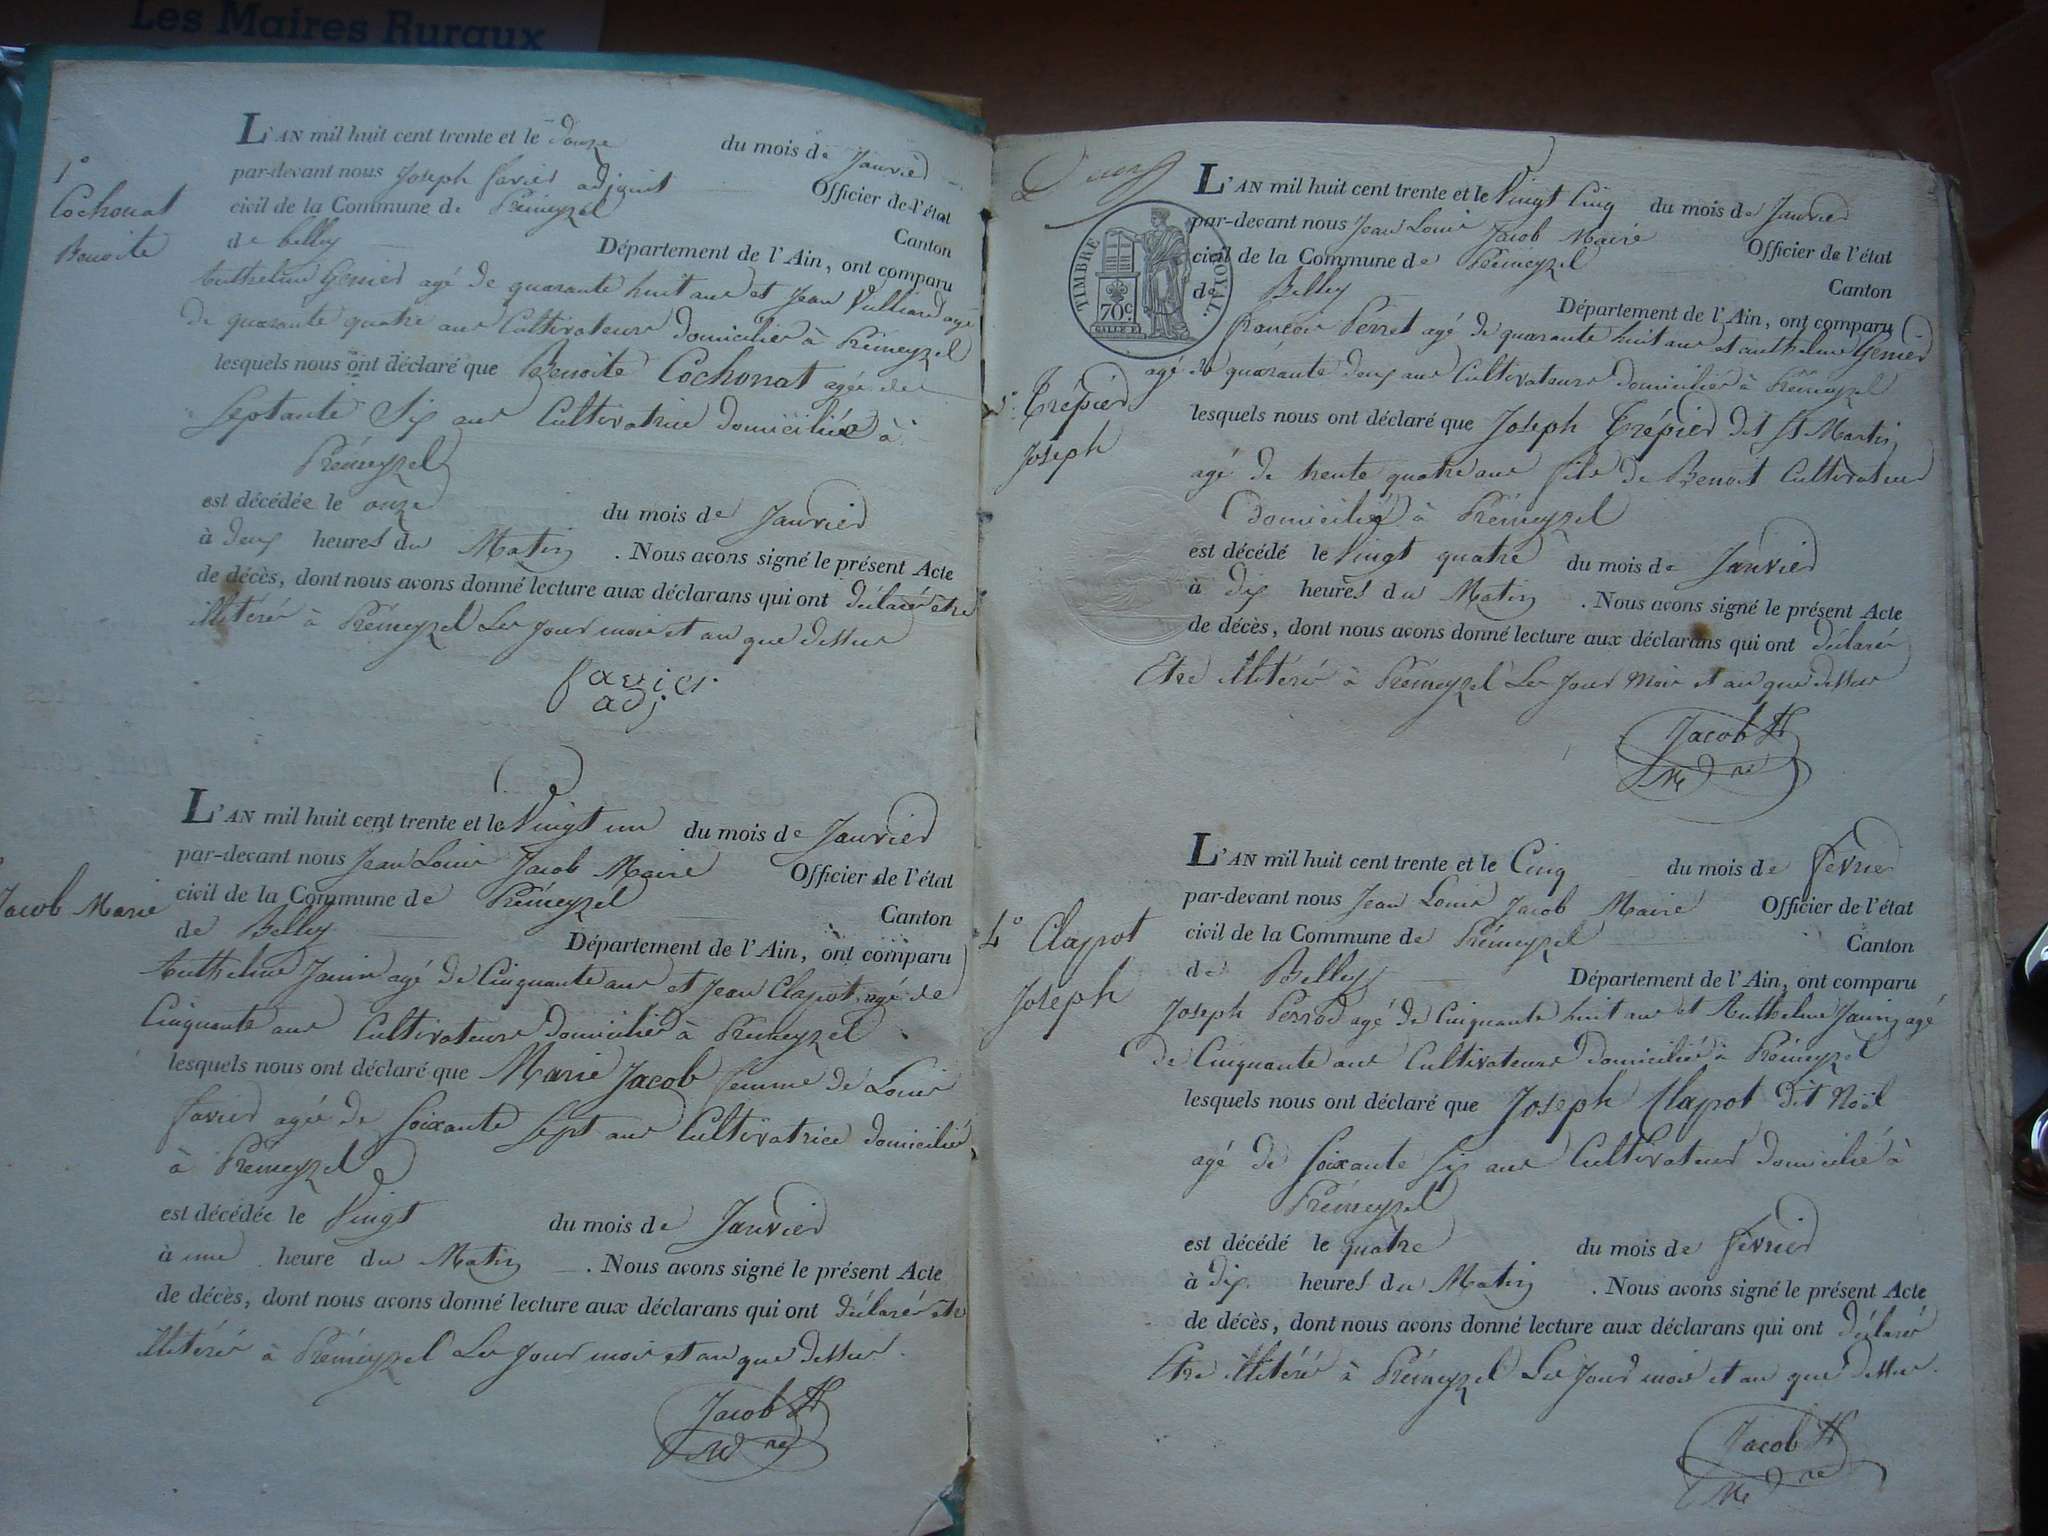 Les Maires Ruraux
1°
Cochonat
Benoite
L'AN mil huit cent trente et le douze du mois de Janvier
par-devant nous Joseph favier adjoint Officier de l'état
civil de la Commune de Prémeyzel Canton
de belley Département de l'Ain, ont comparu
Anthelme Genier agé de quarante huit ans et Jean Vulliard agé
de quarante quatre ans Cultivateurs domiciliés à Prémeyzel
lesquels nous ont déclaré que Benoite Cochonat agée de
Septante Six ans Cultivatrice domiciliée à
Prémeyzel
est décédée le onze du mois de Janvier
à deux heures du Matin . Nous avons signé le présent Acte
de décès, dont nous avons donné lecture aux déclarans qui ont déclaré être
illitérés à Prémeyzel Les Jour mois et an que dessus
favier
adj
Jacob Marie
L'AN mil huit cent trente et le Vingt un du mois de Janvier
par-devant nous Jean Louis Jacob Maire Officier de l'état
civil de la Commune de Prémeyzel Canton
de Belley Département de l'Ain, ont comparu
Anthelme Janin agé de Cinquante ans et Jean Clapot agé de
Cinquante ans Cultivateurs domiciliés à Prémeyzel
lesquels nous ont déclaré que Marie Jacob femme de Louis
favier agée de Soixante Sept ans Cultivatrice domicilié
à Prémeyzel
est décédée le Vingt du mois de Janvier
à une heure du Matin . Nous avons signé le présent Acte
de décès, dont nous avons donné lecture aux déclarans qui ont déclaré etre
illitérés à Prémeyzel Les Jour mois et an que dessus.
Jacob
TIMBRE ROYAL
70c.
3° Trépier
Joseph
L'AN mil huit cent trente et le Vingt Cinq du mois de Janvier
par-devant nous Jean Louis Jacob Maire Officier de l'état
civil de la Commune de Prémeyzel Canton
de Belley Département de l'Ain, ont comparu
françois Perret agé de quarante huit ans et anthelme Genier
agé de quarante deux ans Cultivateurs domiciliés à Prémeyzel
lesquels nous ont déclaré que Joseph Trépier dit St Martin
agé de trente quatre ans fils de Benoit Cultivateur
domicilié à Prémeyzel
est décédé le Vingt quatre du mois de Janvier
à dix heures du Matin . Nous avons signé le présent Acte
de décès, dont nous avons donné lecture aux déclarans qui ont déclaré
Etre illitérés à Prémeyzel Les Jour Mois et an que dessus
Jacob
4° Clapot
Joseph
L'AN mil huit cent trente et le Cinq du mois de février
par-devant nous Jean Louis Jacob Maire Officier de l'état
civil de la Commune de Prémeyzel Canton
de Belley Département de l'Ain, ont comparu
Joseph Perrod agé de Cinquante huit ans et Anthelme Janin agé
de Cinquante ans Cultivateurs domiciliés à Prémeyzel
lesquels nous ont déclaré que Joseph Clapot dit Noël
agé de Soixante Six ans Cultivateur domicilié à
Prémeyzel
est décédé le quatre du mois de février
à dix heures du Matin . Nous avons signé le présent Acte
de décès, dont nous avons donné lecture aux déclarans qui ont déclaré
Etre illitérés à Prémeyzel Les Jour mois et an que dessus.
Jacob